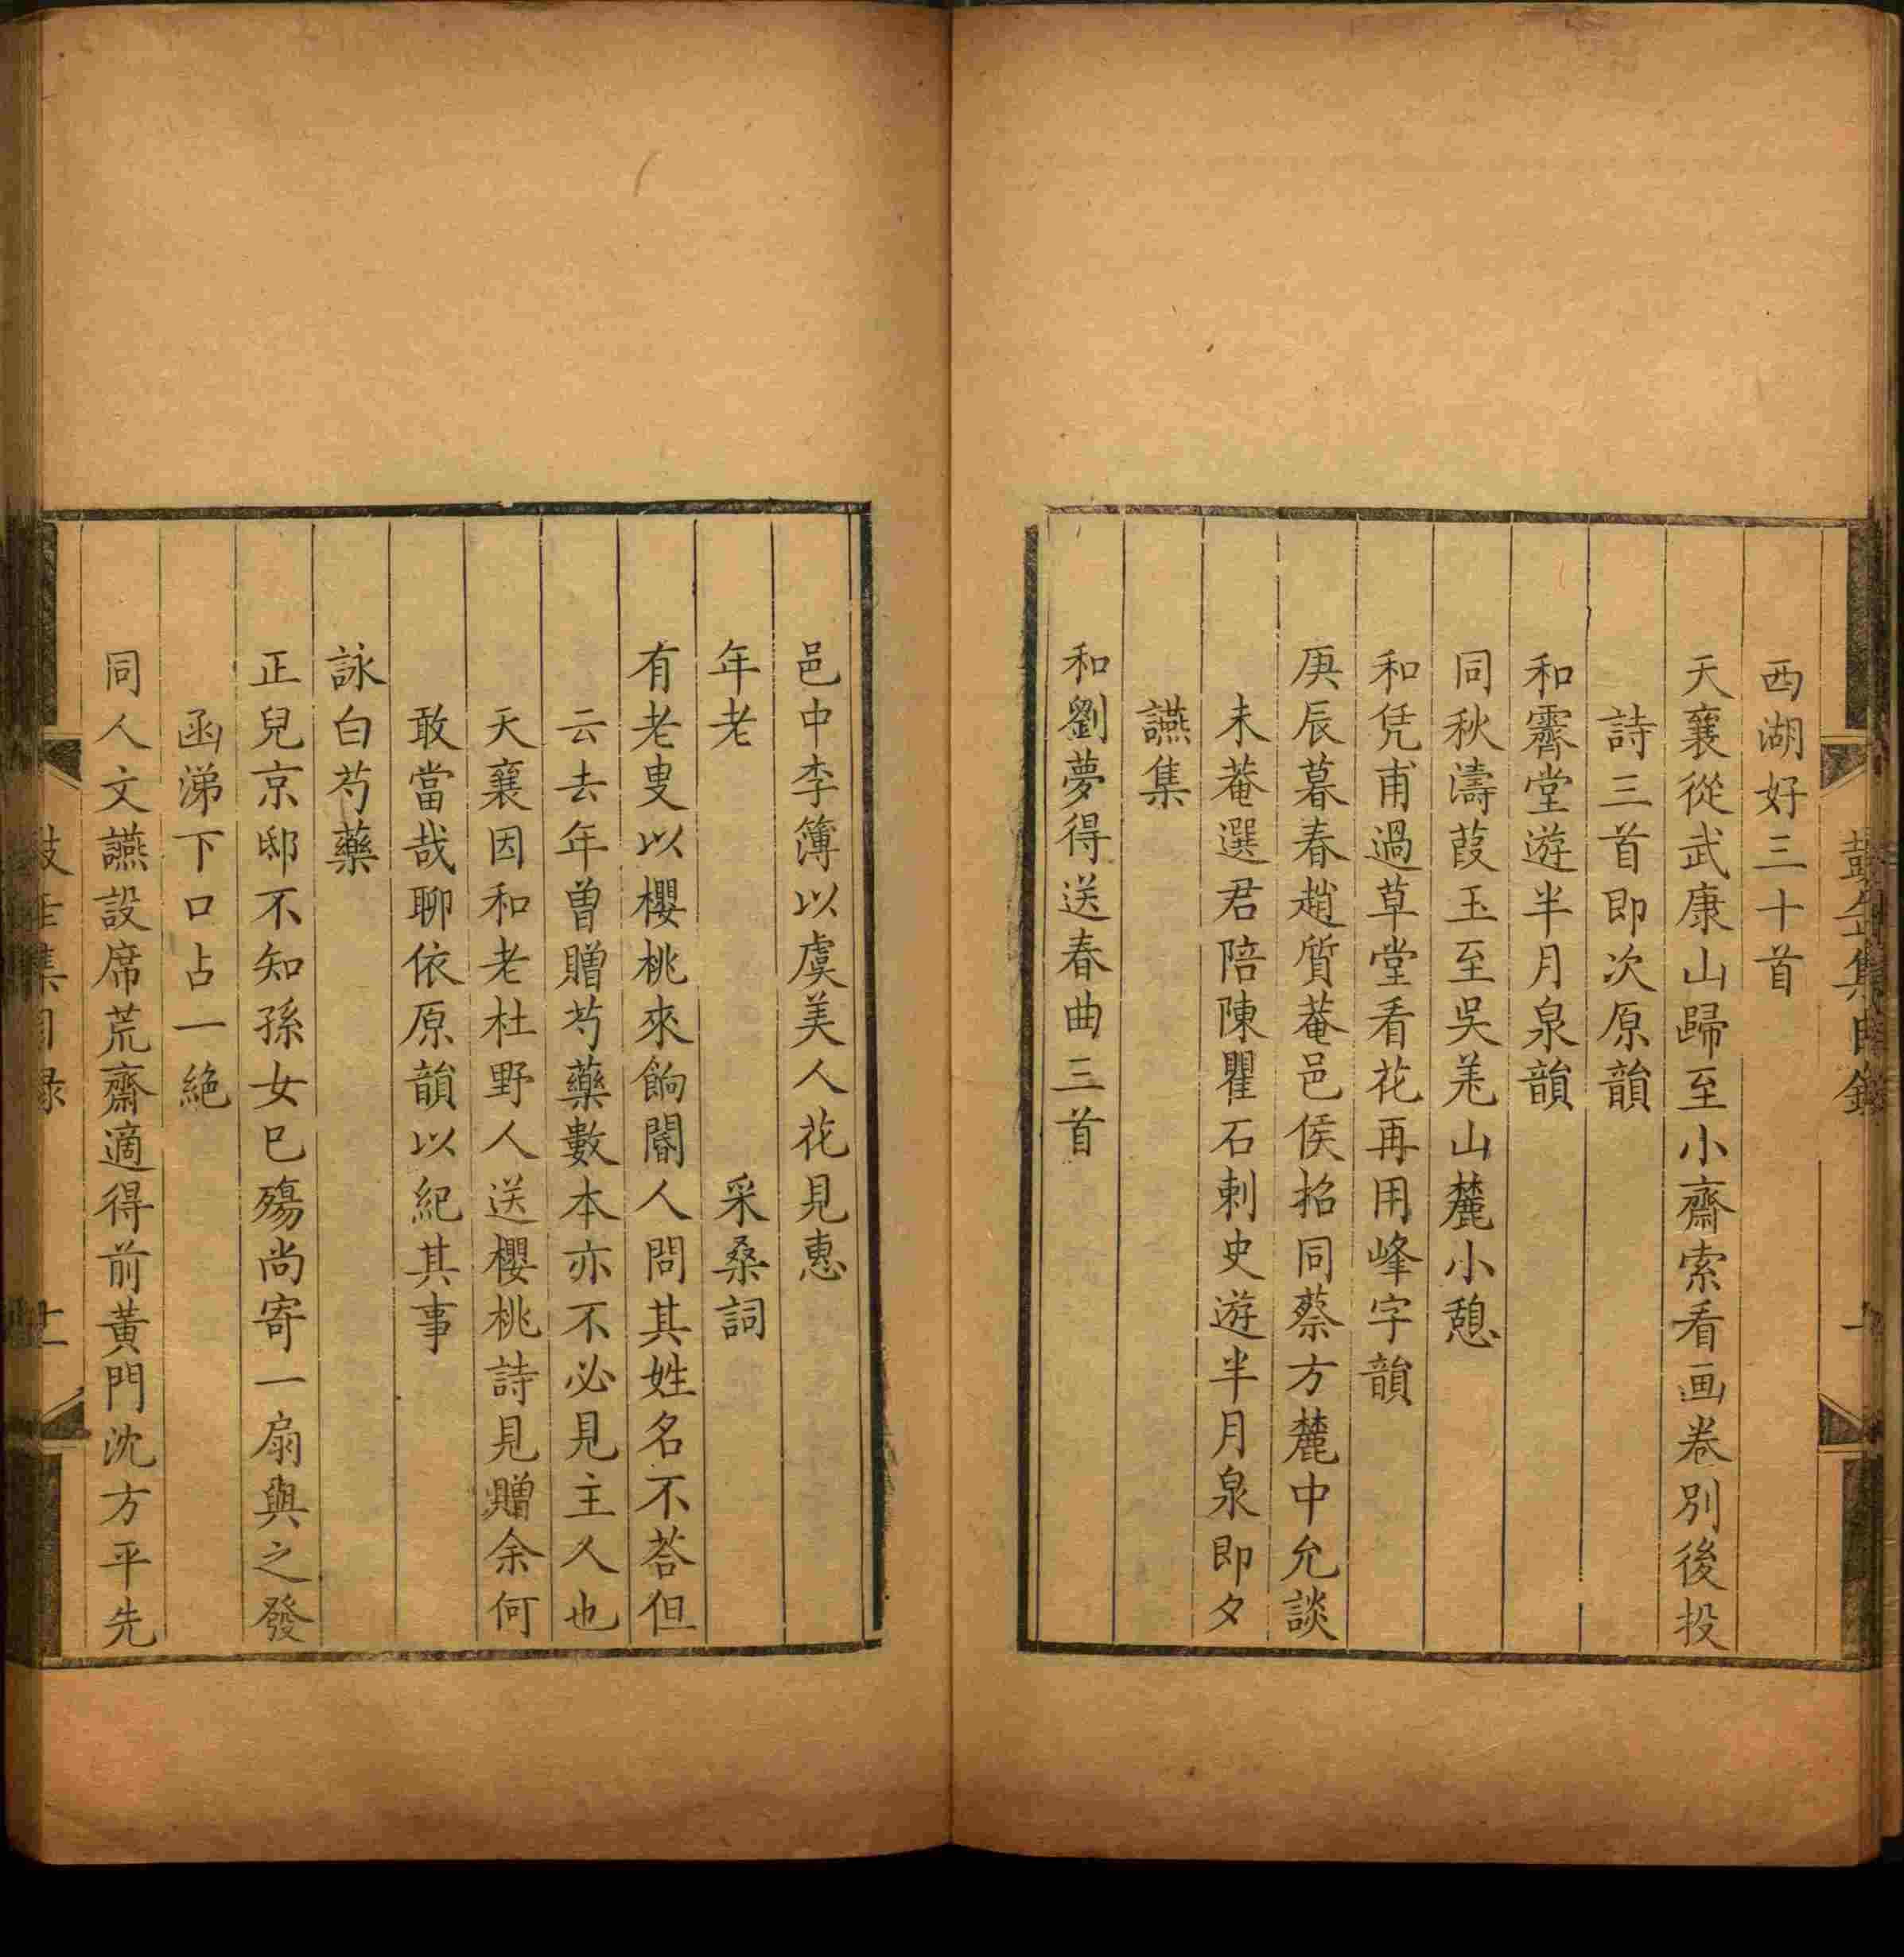 西湖好三十首
天襄從武康山歸至小齋索看画卷別後投
詩三首即次原韻
和霽堂遊半月泉韻
同秋濤葭玉至吳羌山麓小憩
和凭甫過草堂看花再用峰字韻
庚辰暮春趙質菴邑侯招同蔡方麓中允談
未菴選君陪陳瞿石刺史遊半月泉即夕
讌集
和劉夢得送春曲三首
邑中李簿以虞美人花見惠
年老 采桑詞
有老叟以櫻桃來餉閽人問其姓名不荅但
云去年曾贈芍藥數本亦不必見主人也
天襄因和老杜野人送櫻桃詩見贈余何
敢當哉聊依原韻以紀其事
詠白芍藥
正兒京邸不知孫女已殤尚寄一扇與之發
函涕下口占一絕
同人文讌設席荒齋適得前黃門沈方平先